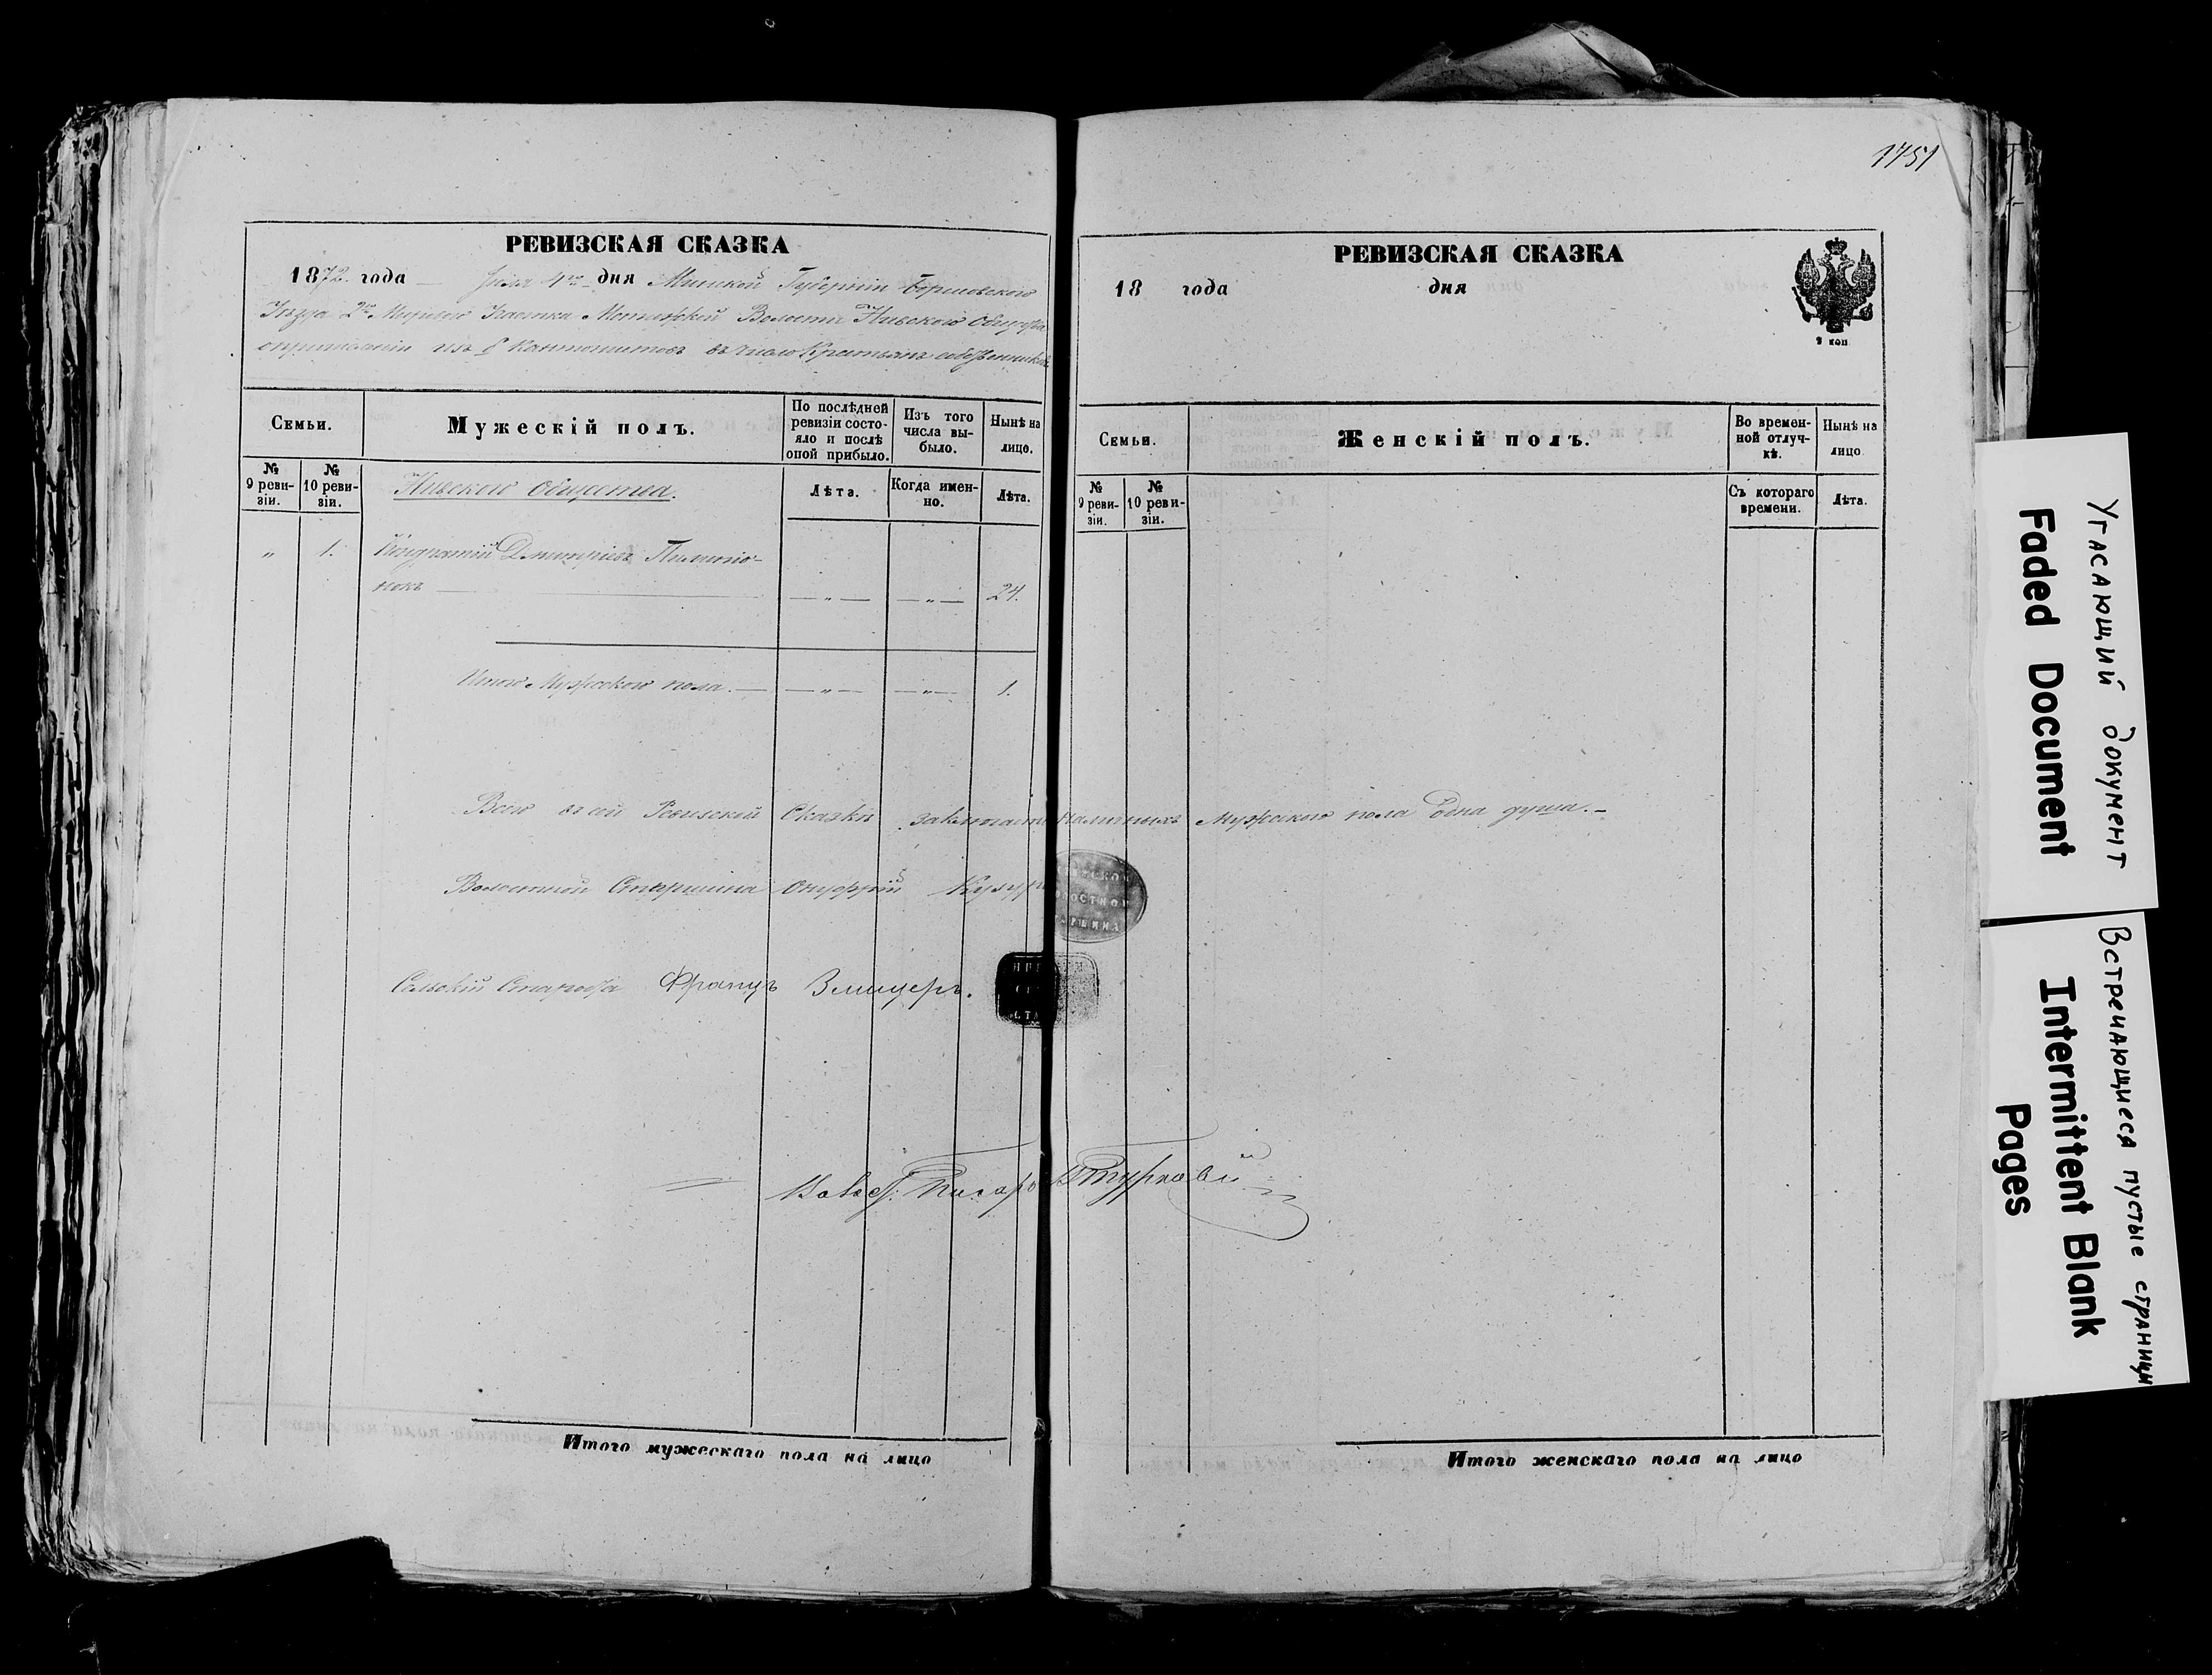 1751
РЕВИЗСКАЯ СКАЗКА
1872 года Іюля 4го дня Минской Губерніи Борисовского
Уѣзда 2го Мирового Участка Волости Нивского Общества
изъ въ число Крестьянъ собственниковъ
Семьи.
Мужескій полъ.
По послѣдней
ревизіи состо-
яло и послѣ
оной прибыло.
Изъ того
числа вы-
было.
Нынѣ на
лицо.
№
9 реви-
зіи.
№
10 реви-
зіи.
Нивского общества.
Лѣта.
Когда имен-
но.
Лѣта.
„ 1. Кондратій Дмитріевъ
нокъ — — „ — — „ — 24.
Итого Мужеского пола. — — „ — — „ — 1.
Всего въ сей Ревизской Сказкѣ заключается наличныхъ Мужеского пола одна душа. –
Волостной Старшина Онуфрій
Сельскій Староста Францъ Змицеръ.
Писарь
Итого мужескаго пола на лицо
РЕВИЗСКАЯ СКАЗКА
18 года дня
2 коп
Семьи.
Женскій полъ.
Во времен-
ной отлуч-
кѣ.
Нынѣ на
лицо
№
9 реви-
зіи.
№
10 реви-
зіи.
Съ котораго
времени.
Лѣта.
Итого женскаго пола на лицо
Угасающий документ
Faded Document
Встречающиеся пустые страницы
Intermittent Blank
Pages